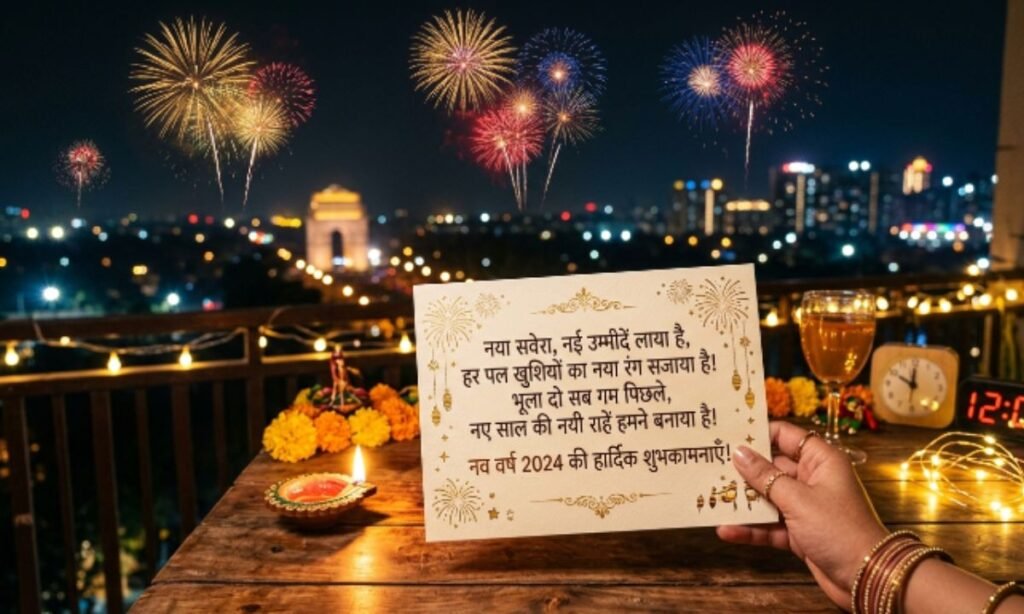 नया सवेरा, नई उम्मीदें लाया है,
हर पल खुशियों का नया रंग सजाया है!
भूला दो सब गम पिछले,
नए साल की नयी राहें हमने बनाया है!
नव वर्ष 2024 की हार्दिक शुभकामनाएँ!
12:0